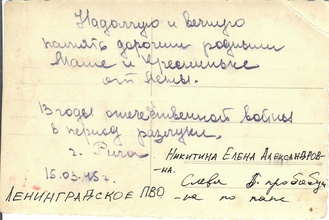 На долгую и вечную
память дорогим родным
Маше и
от Лены.
В годы отечественной войны
в период разлуки.
г. Рига
15.03.45 г.
Никитина Елена Александров-
-на.
Слева
-ка по папе
Ленинградское ПВО